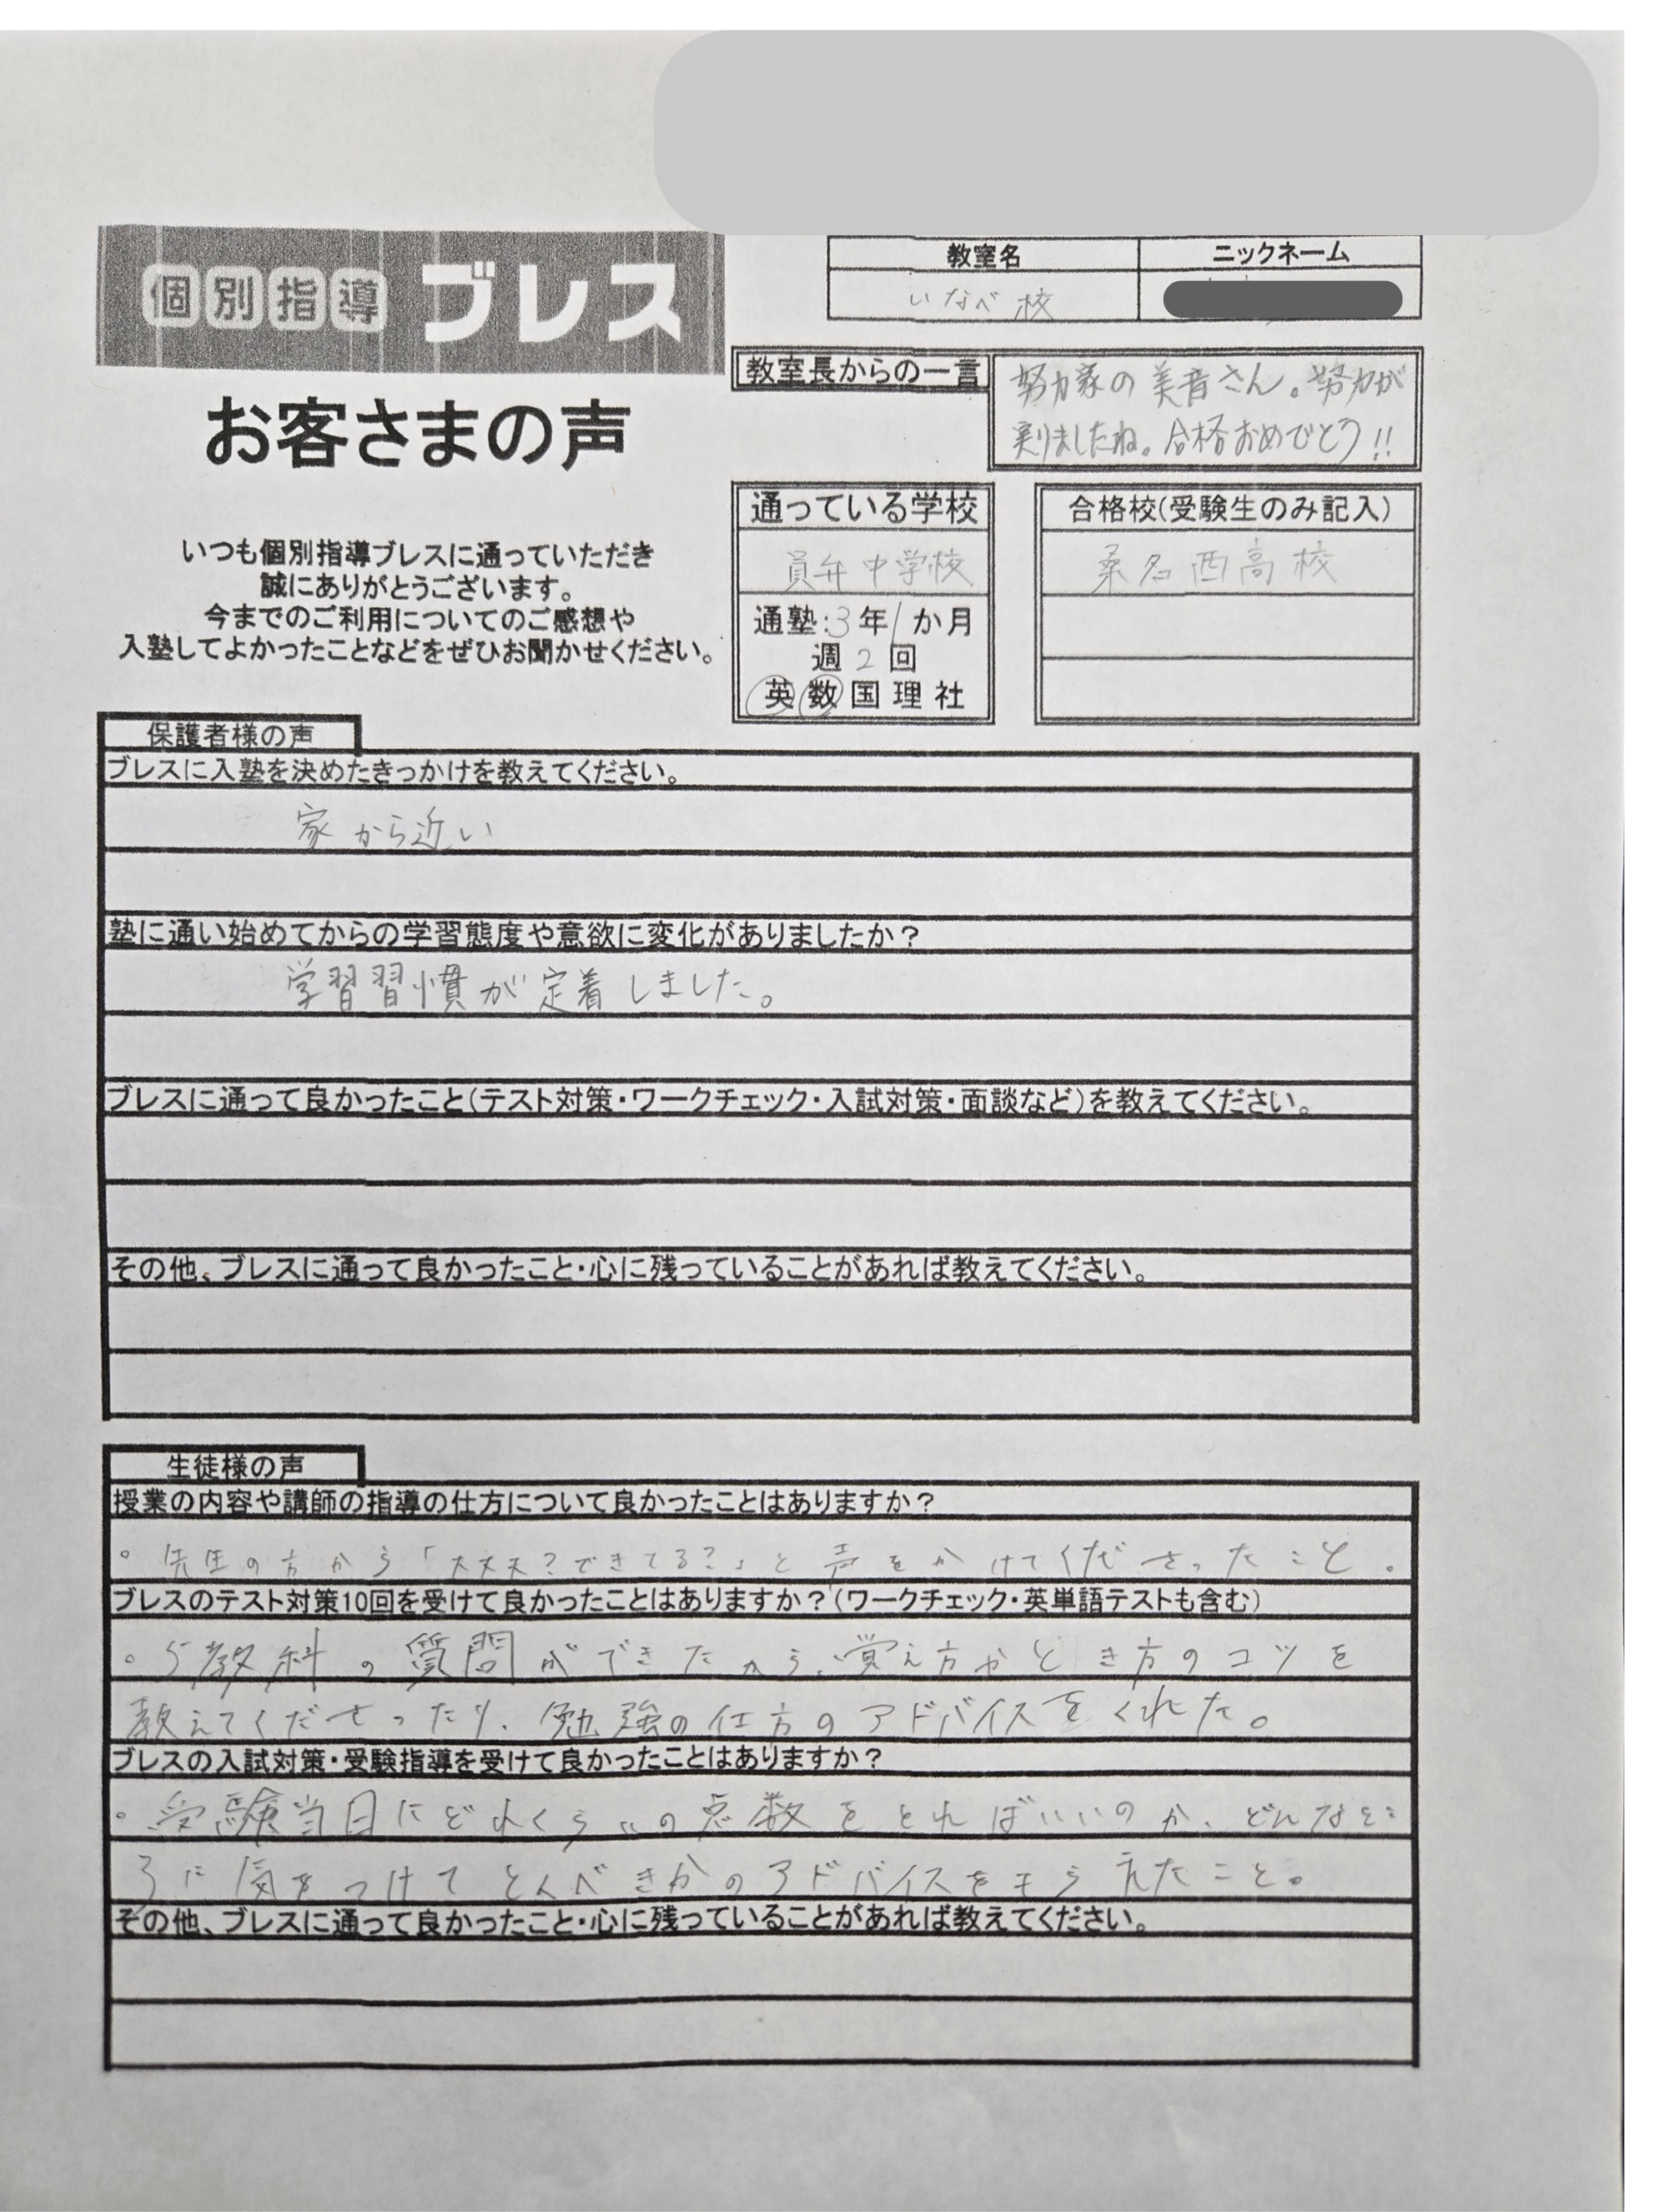 教室名 ニックネーム
いなべ校
個別指導 ブレス
教室長からの一言
努力家の美音さん。努力が
実りましたね。合格おめでとう!!
お客さまの声
通っている学校
員弁中学校
通塾:3年1か月
週2回
英数国理社
合格校(受験生のみ記入)
桑名西高校
いつも個別指導ブレスに通っていただき
誠にありがとうございます。
今までのご利用についてのご感想や
入塾してよかったことなどをぜひお聞かせください。
保護者様の声
ブレスに入塾を決めたきっかけを教えてください。
家から近い
塾に通い始めてからの学習態度や意欲に変化がありましたか?
学習習慣が定着しました。
ブレスに通って良かったこと(テスト対策・ワークチェック・入試対策・面談など)を教えてください。
その他、ブレスに通って良かったこと・心に残っていることがあれば教えてください。
生徒様の声
授業の内容や講師の指導の仕方について良かったことはありますか?
。先生の方から「大丈夫?できてる?」と声をかけてくださったこと。
ブレスのテスト対策10回を受けて良かったことはありますか?(ワークチェック・英単語テストも含む)
。5教科の質問ができたから、覚え方やとき方のコツを
教えてくださったり、勉強の仕方のアドバイスをくれた。
ブレスの入試対策・受験指導を受けて良かったことはありますか?
。受験当日にどれくらいの点数をとればいいのか、どんなとこ
ろに気をつけてとくべきかのアドバイスをもらえたこと。
その他、ブレスに通って良かったこと・心に残っていることがあれば教えてください。